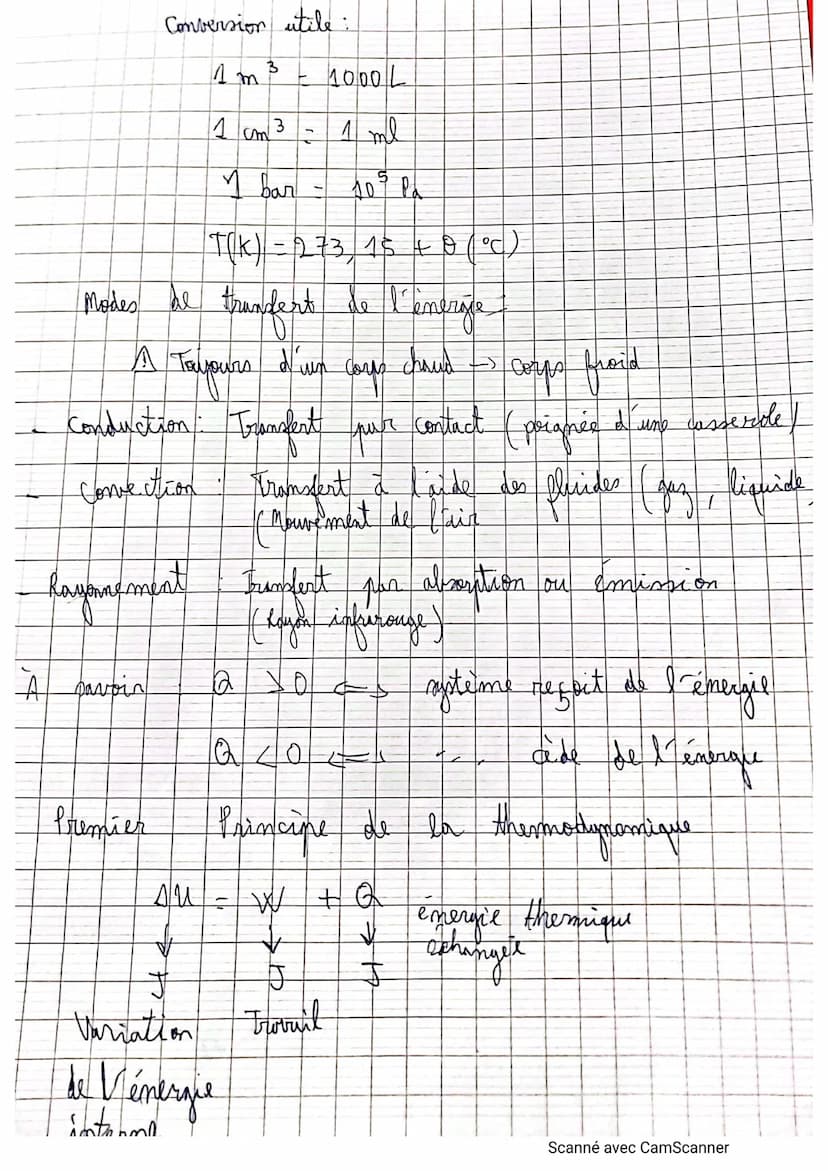 Conversion utile :
1 m³ = 1000 L
1 cm³ = 1 ml
1 bar = 10⁵ Pa
T(K) = 273,15 + θ (°C)
Modes de transfert de l'énergie :
⚠ Toujours d'un corps chaud → corps froid
- Conduction : Transfert par contact (poignée d'une casserole)
- Convection : Transfert à l'aide des fluides (gaz, liquide,
(Mouvement de l'air
- Rayonnement : Transfert par absorption ou émission
(Rayon infrarouge)
À savoir : Q > 0 <=> système reçoit de l'énergie
Q < 0 <=> -.. cède de l'énergie
Premier Principe de la thermodynamique
ΔU = W + Q énergie thermique
↓ ↓ ↓ échangée
J J J
Variation Travail
de l'énergie
interne
Scanné avec CamScanner